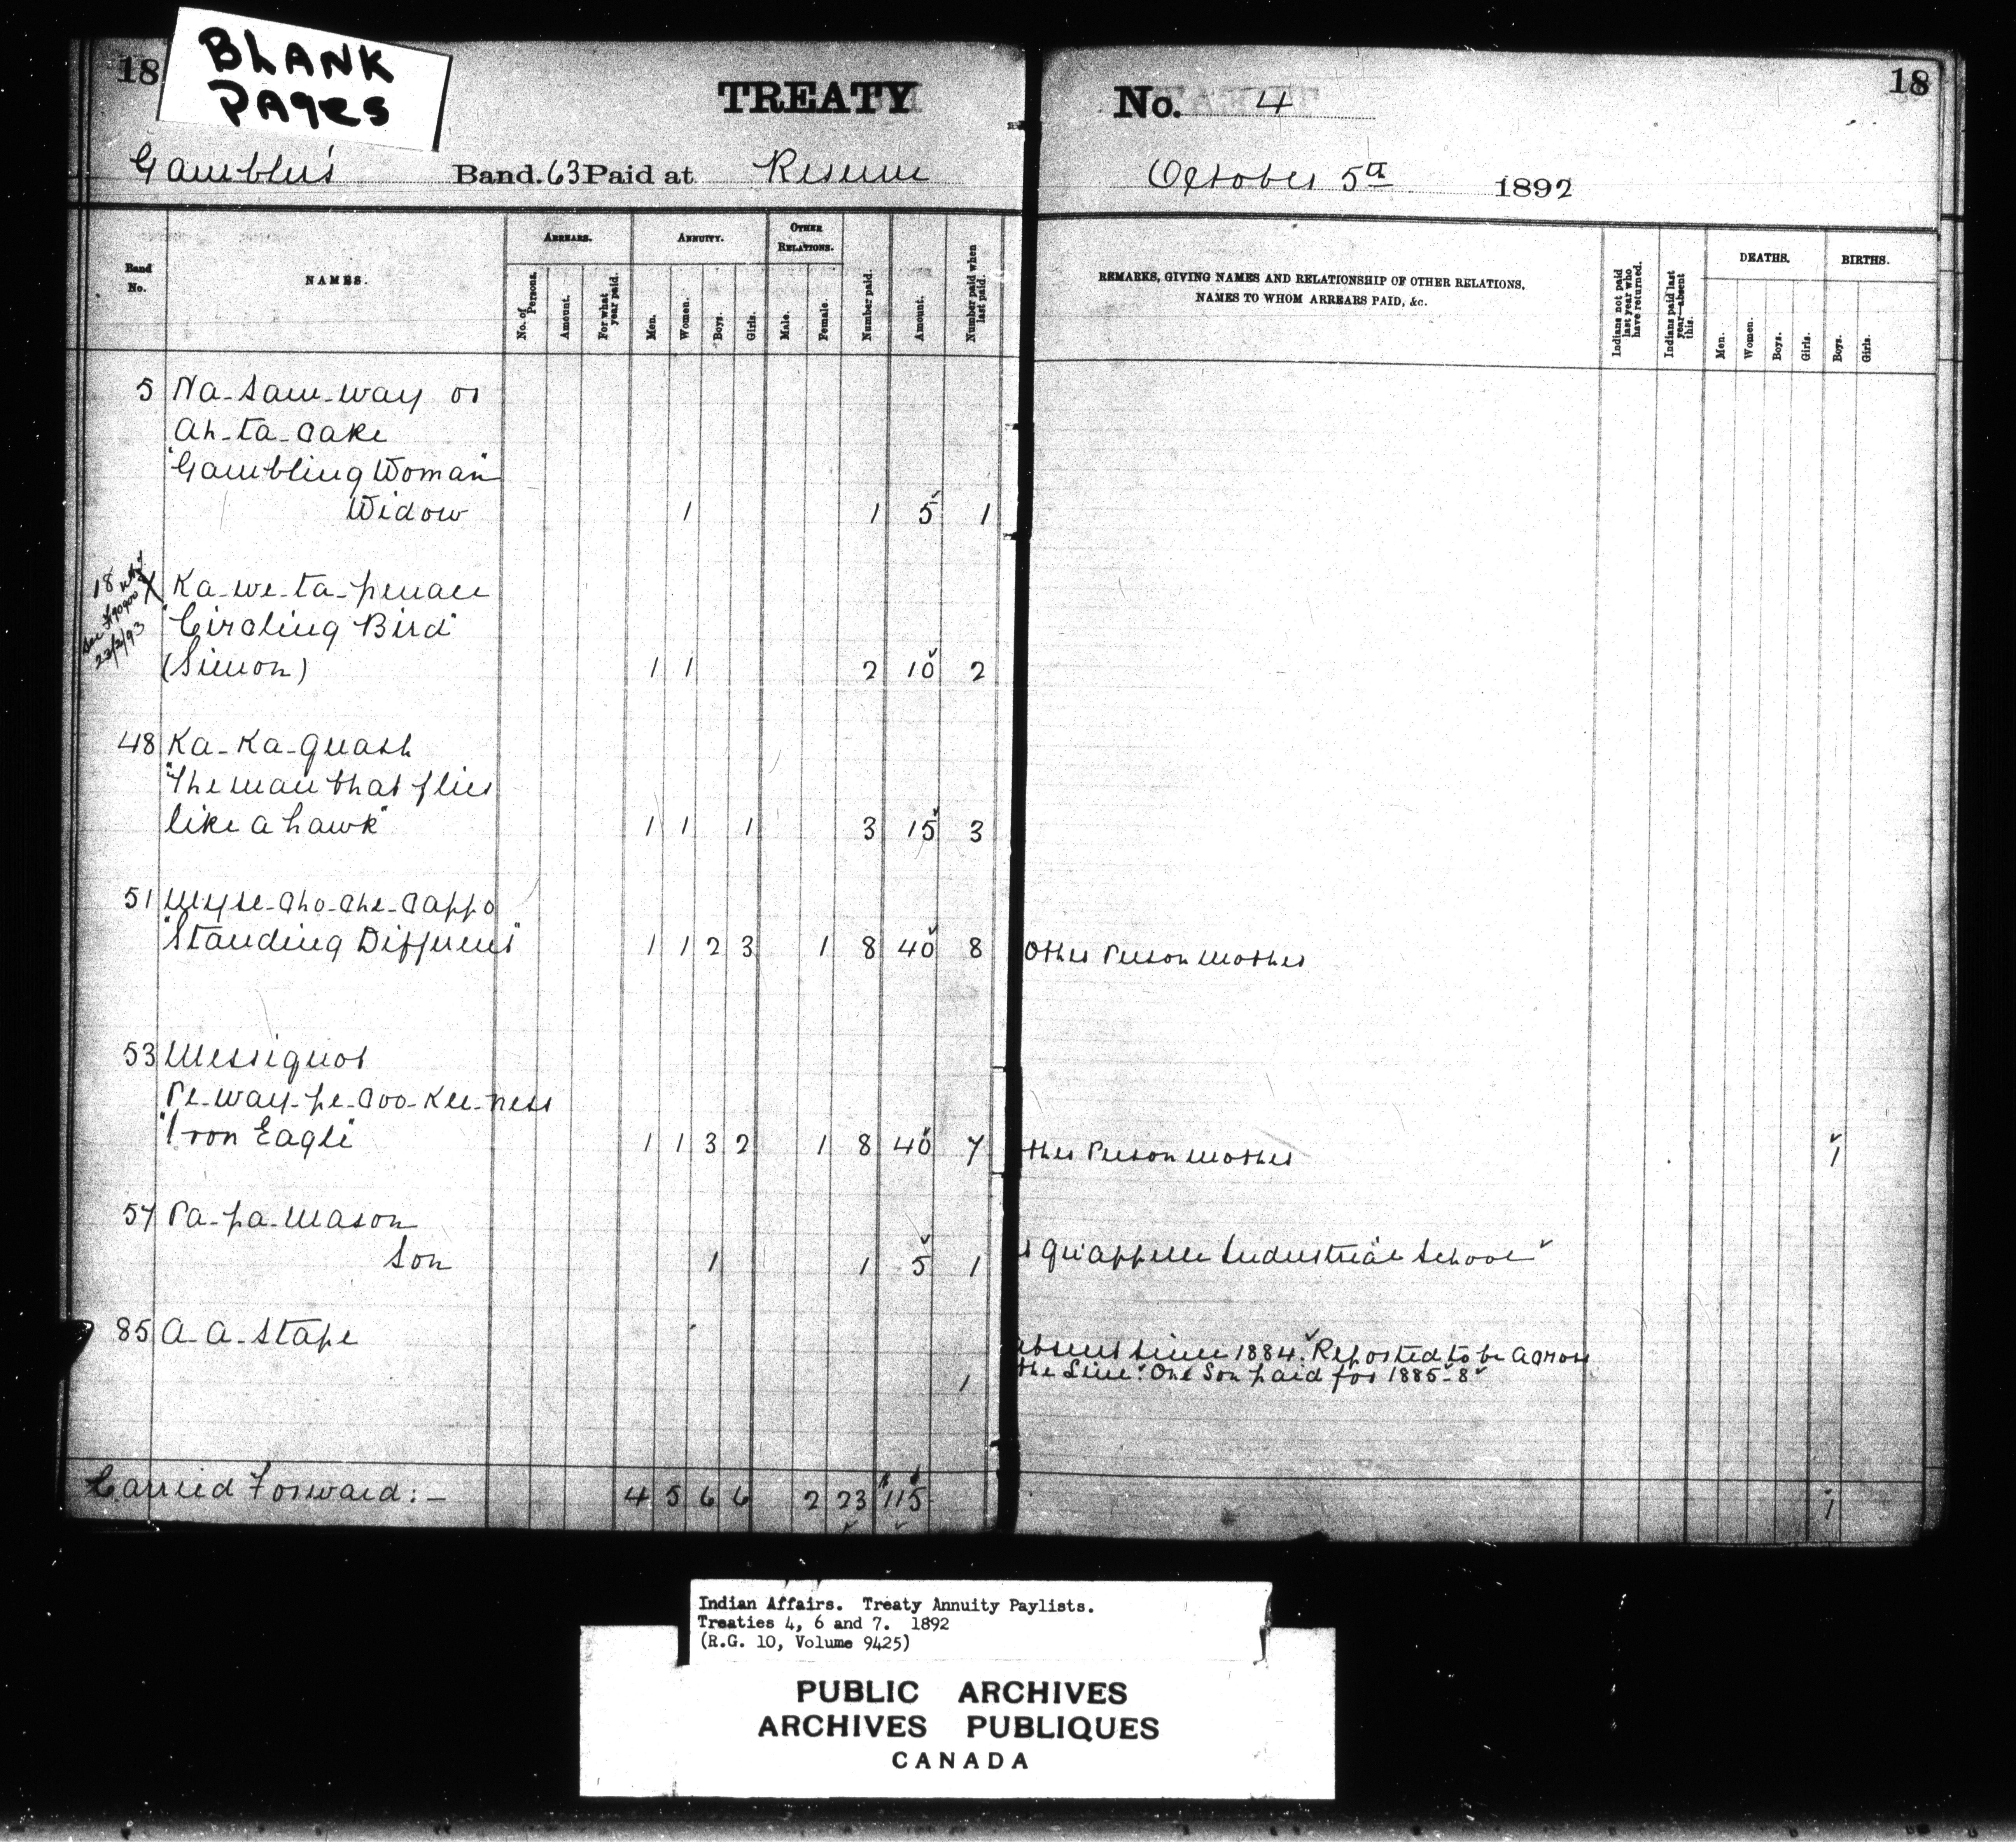 18
BLANK
PAges
TREATY
No. 4
18
Gambler's Band. 63 Paid at Reserve
October 5th 1892
Band No.
NAMES.
ARREARS.
No. of Persons.
Amount.
For what year paid.
ANNUITY.
Men.
Women.
Boys.
Girls.
OTHER RELATIONS.
Male.
Female.
Number paid.
Amount.
Number paid when last paid.
REMARKS, GIVING NAMES AND RELATIONSHIP OF OTHER RELATIONS,
NAMES TO WHOM ARREARS PAID, &c.
Indians not paid last year who have returned.
Indians paid last year—absent this.
DEATHS.
Men.
Women.
Boys.
Girls.
BIRTHS.
Boys.
Girls.
5 Na-saw-way or
Ah-ta-cake
"Gambling Woman"
Widow 1 1 5 1
18 X Ka-we-ta-penace
"Circling Bird"
23/2/93
(Simon) 1 1 2 10 2
48 Ka-Ka-quash
"The man that flies
like a hawk" 1 1 1 3 15 3
51 Myse-cho-che-cappo
"Standing Different" 1 1 2 3 1 8 40 8 Other Person Mother
53 Messiquot
Pe-way-pe-coo-Kee-ness
"Iron Eagle" 1 1 3 2 1 8 40 7 ther Person Mother 1
57 Pa-pa-Mason
Son 1 1 5 1 t Qu'appelle Industrial School
85 A-A-Stape
absent since 1884. Reported to be across
1 the Line. One Son paid for 1885-8
Carried Forward:- 4 5 6 6 2 23 $115 1
Indian Affairs. Treaty Annuity Paylists.
Treaties 4, 6 and 7. 1892
(R.G. 10, Volume 9425)
PUBLIC ARCHIVES
ARCHIVES PUBLIQUES
CANADA